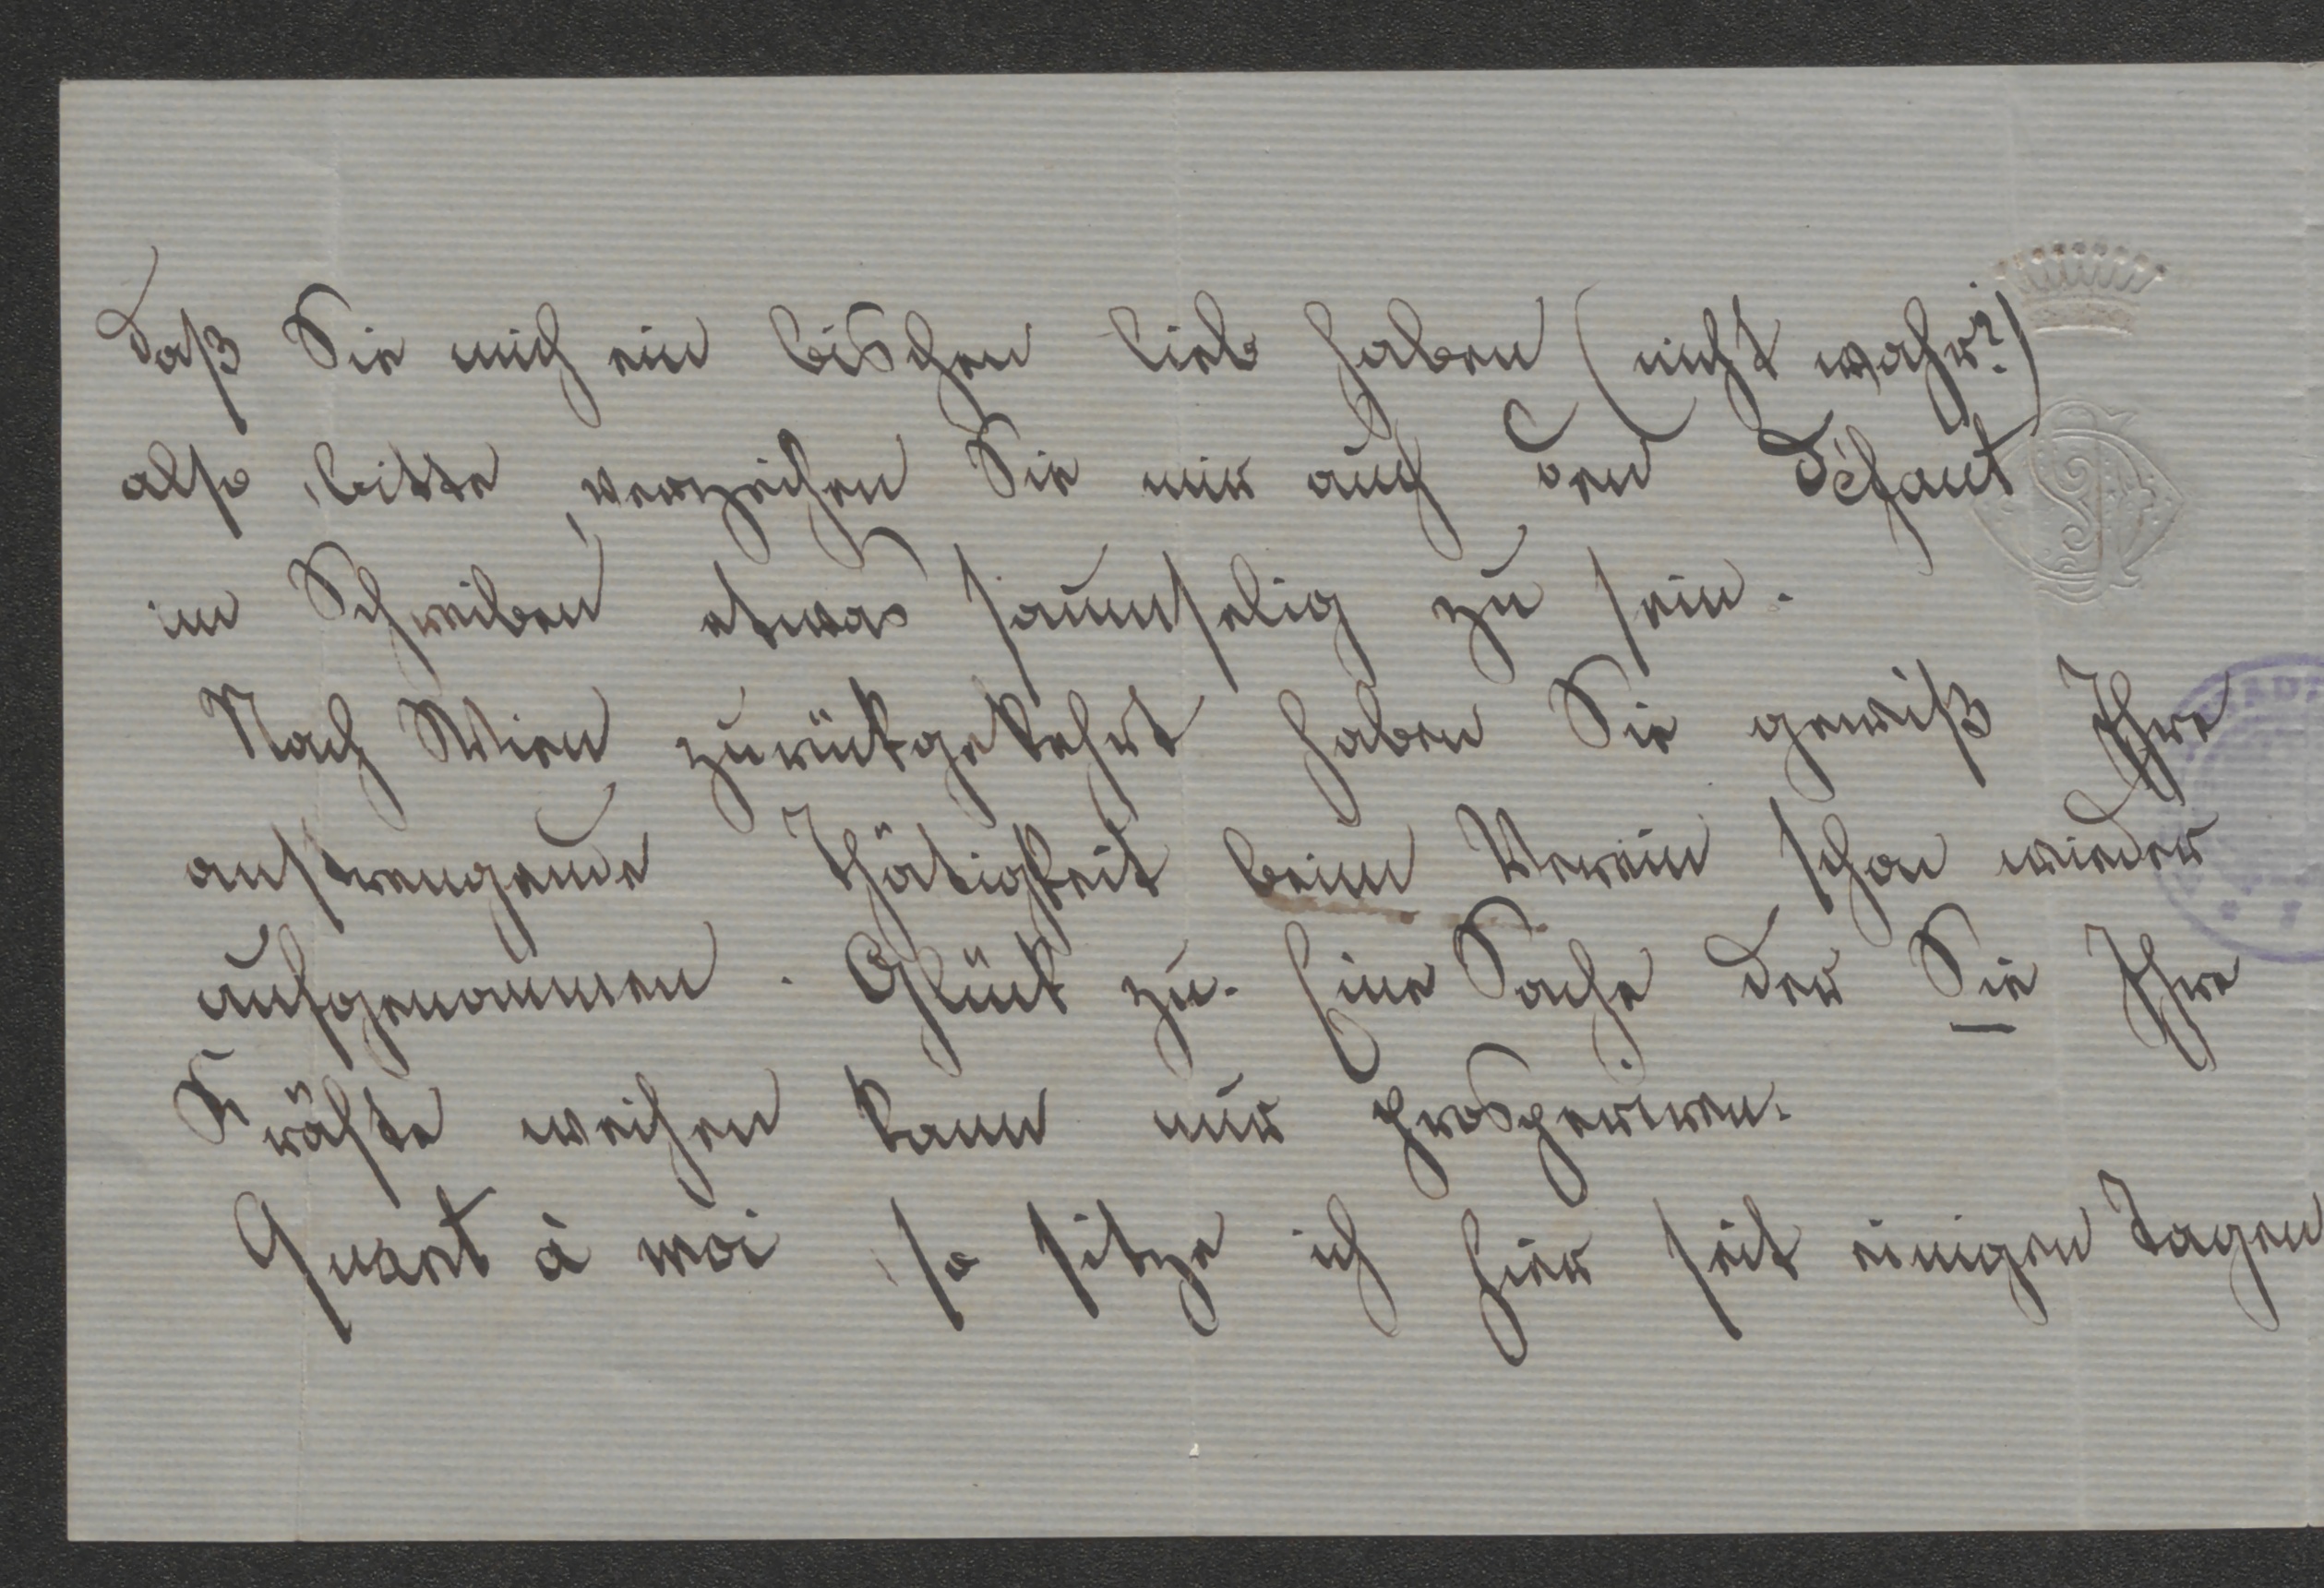 daß Sie mich ein bischen lieb haben (nicht wahr?)
also bitte verzeihen Sie mir auch den défaut
im Schreiben etwas saumselig zu sein.
Nach Wien zurückgekehrt haben Sie gewiß Ihre
anstrengende Thätigkeit beim Verein schon wieder
aufgenommen. Glück zu. Eine Sache der Sie Ihre
Kräfte weihen kann nur prosperiren.
Quant à moi so sitze ich hier seit einigen Tagen